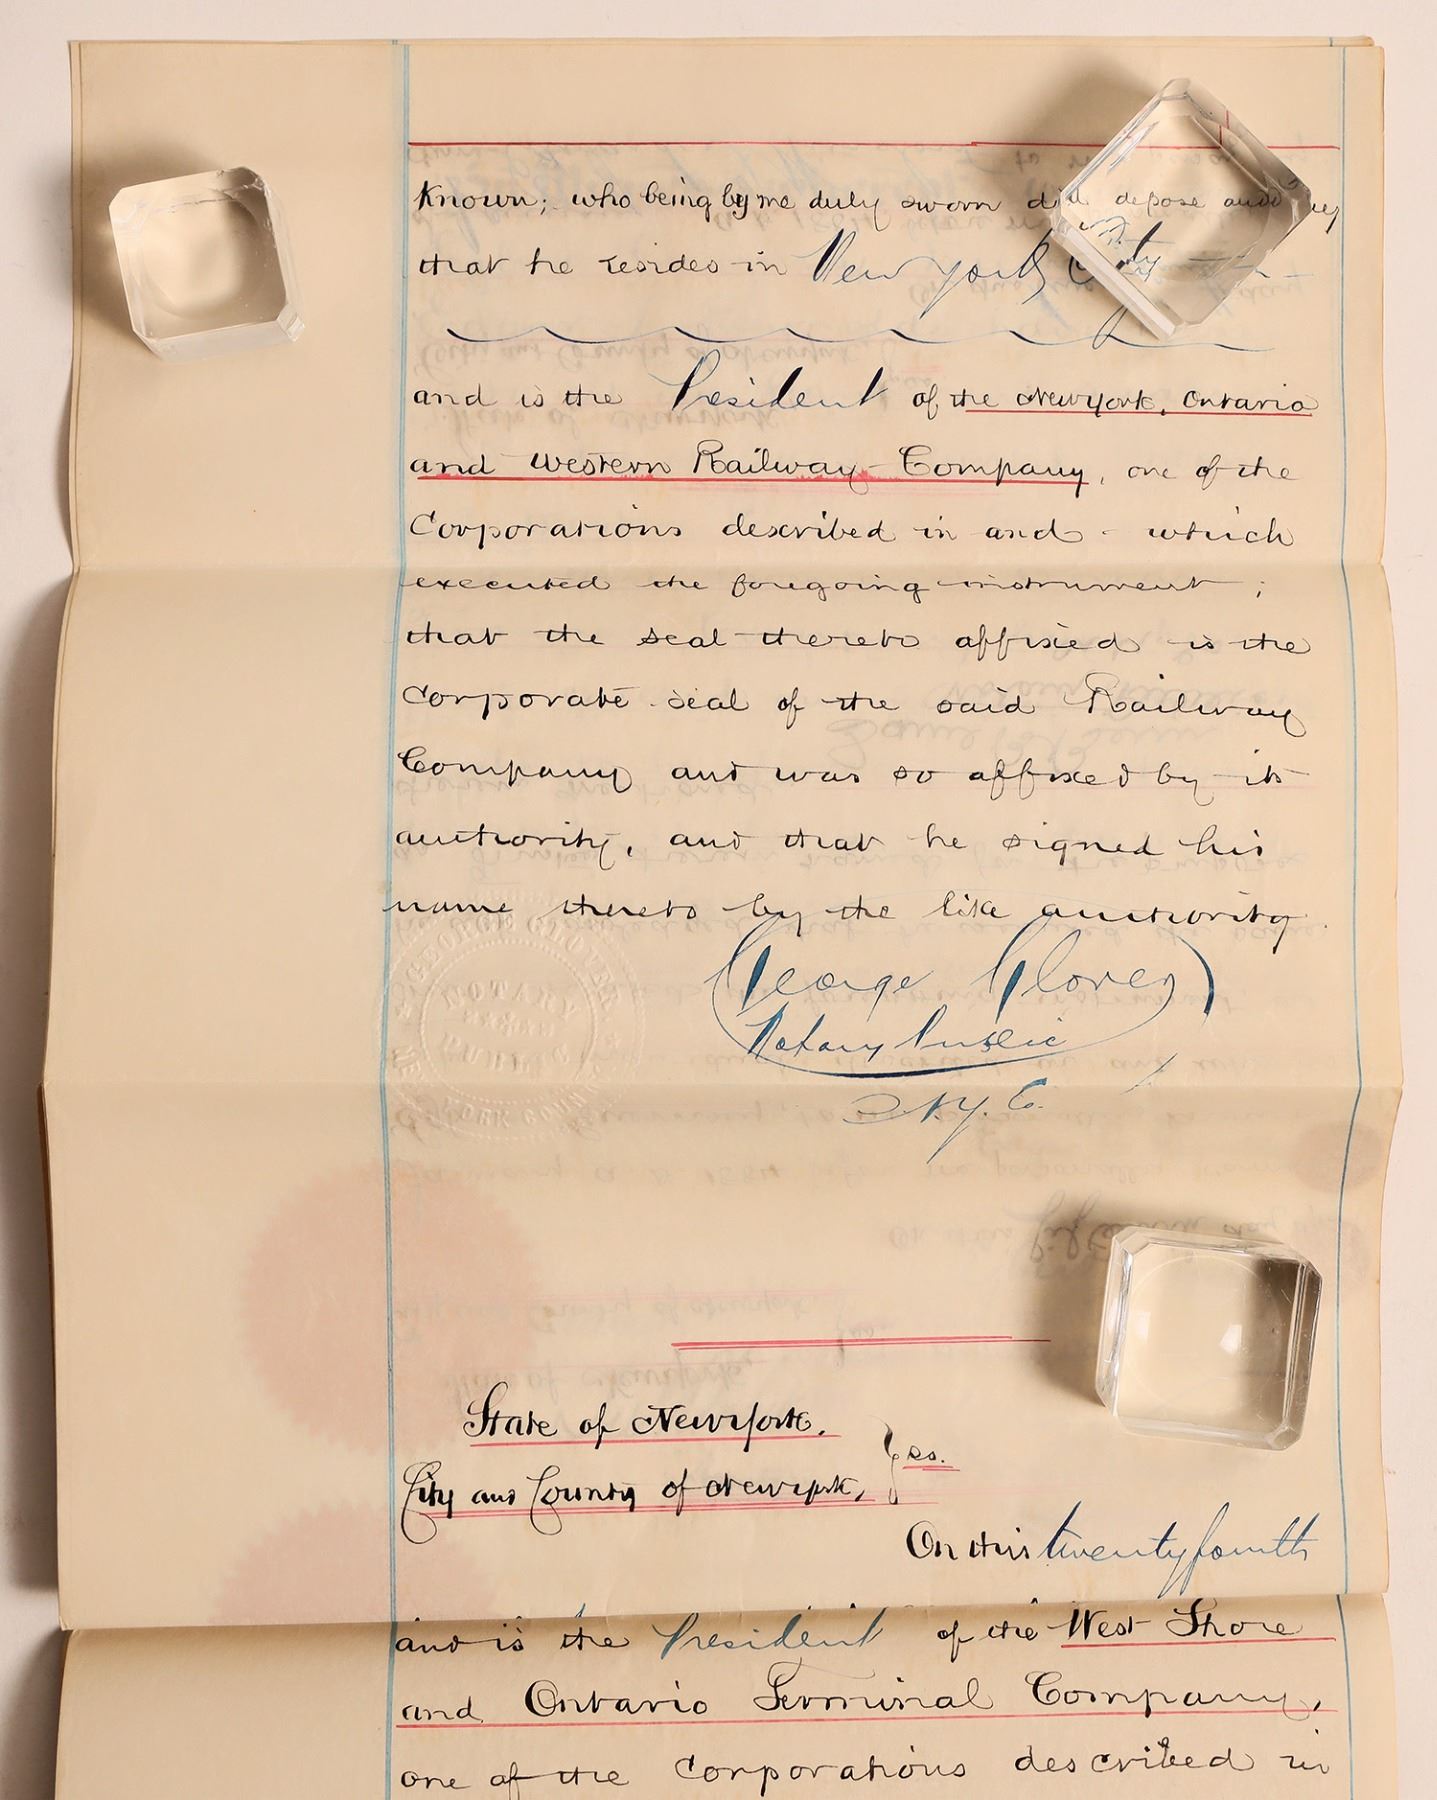 Known; who being by me duly sworn did depose and say
that he resides in New York City
and is the President of the New York, Ontario
and Western Railway Company, one of the
Corporations described in and which
executed the foregoing instrument;
that the seal thereto affixed is the
Corporate seal of the said Railway
Company and was so affixed by its
authority, and that he signed his
name thereto by the like authority.
George Glover
Notary Public
N.Y.C.
GEORGE GLOVER
NOTARY
PUBLIC
State of New York,
City and County of New York, } ss.
On this twenty fourth
and is the President of the West Shore
and Ontario Terminal Company,
one of the Corporations described in